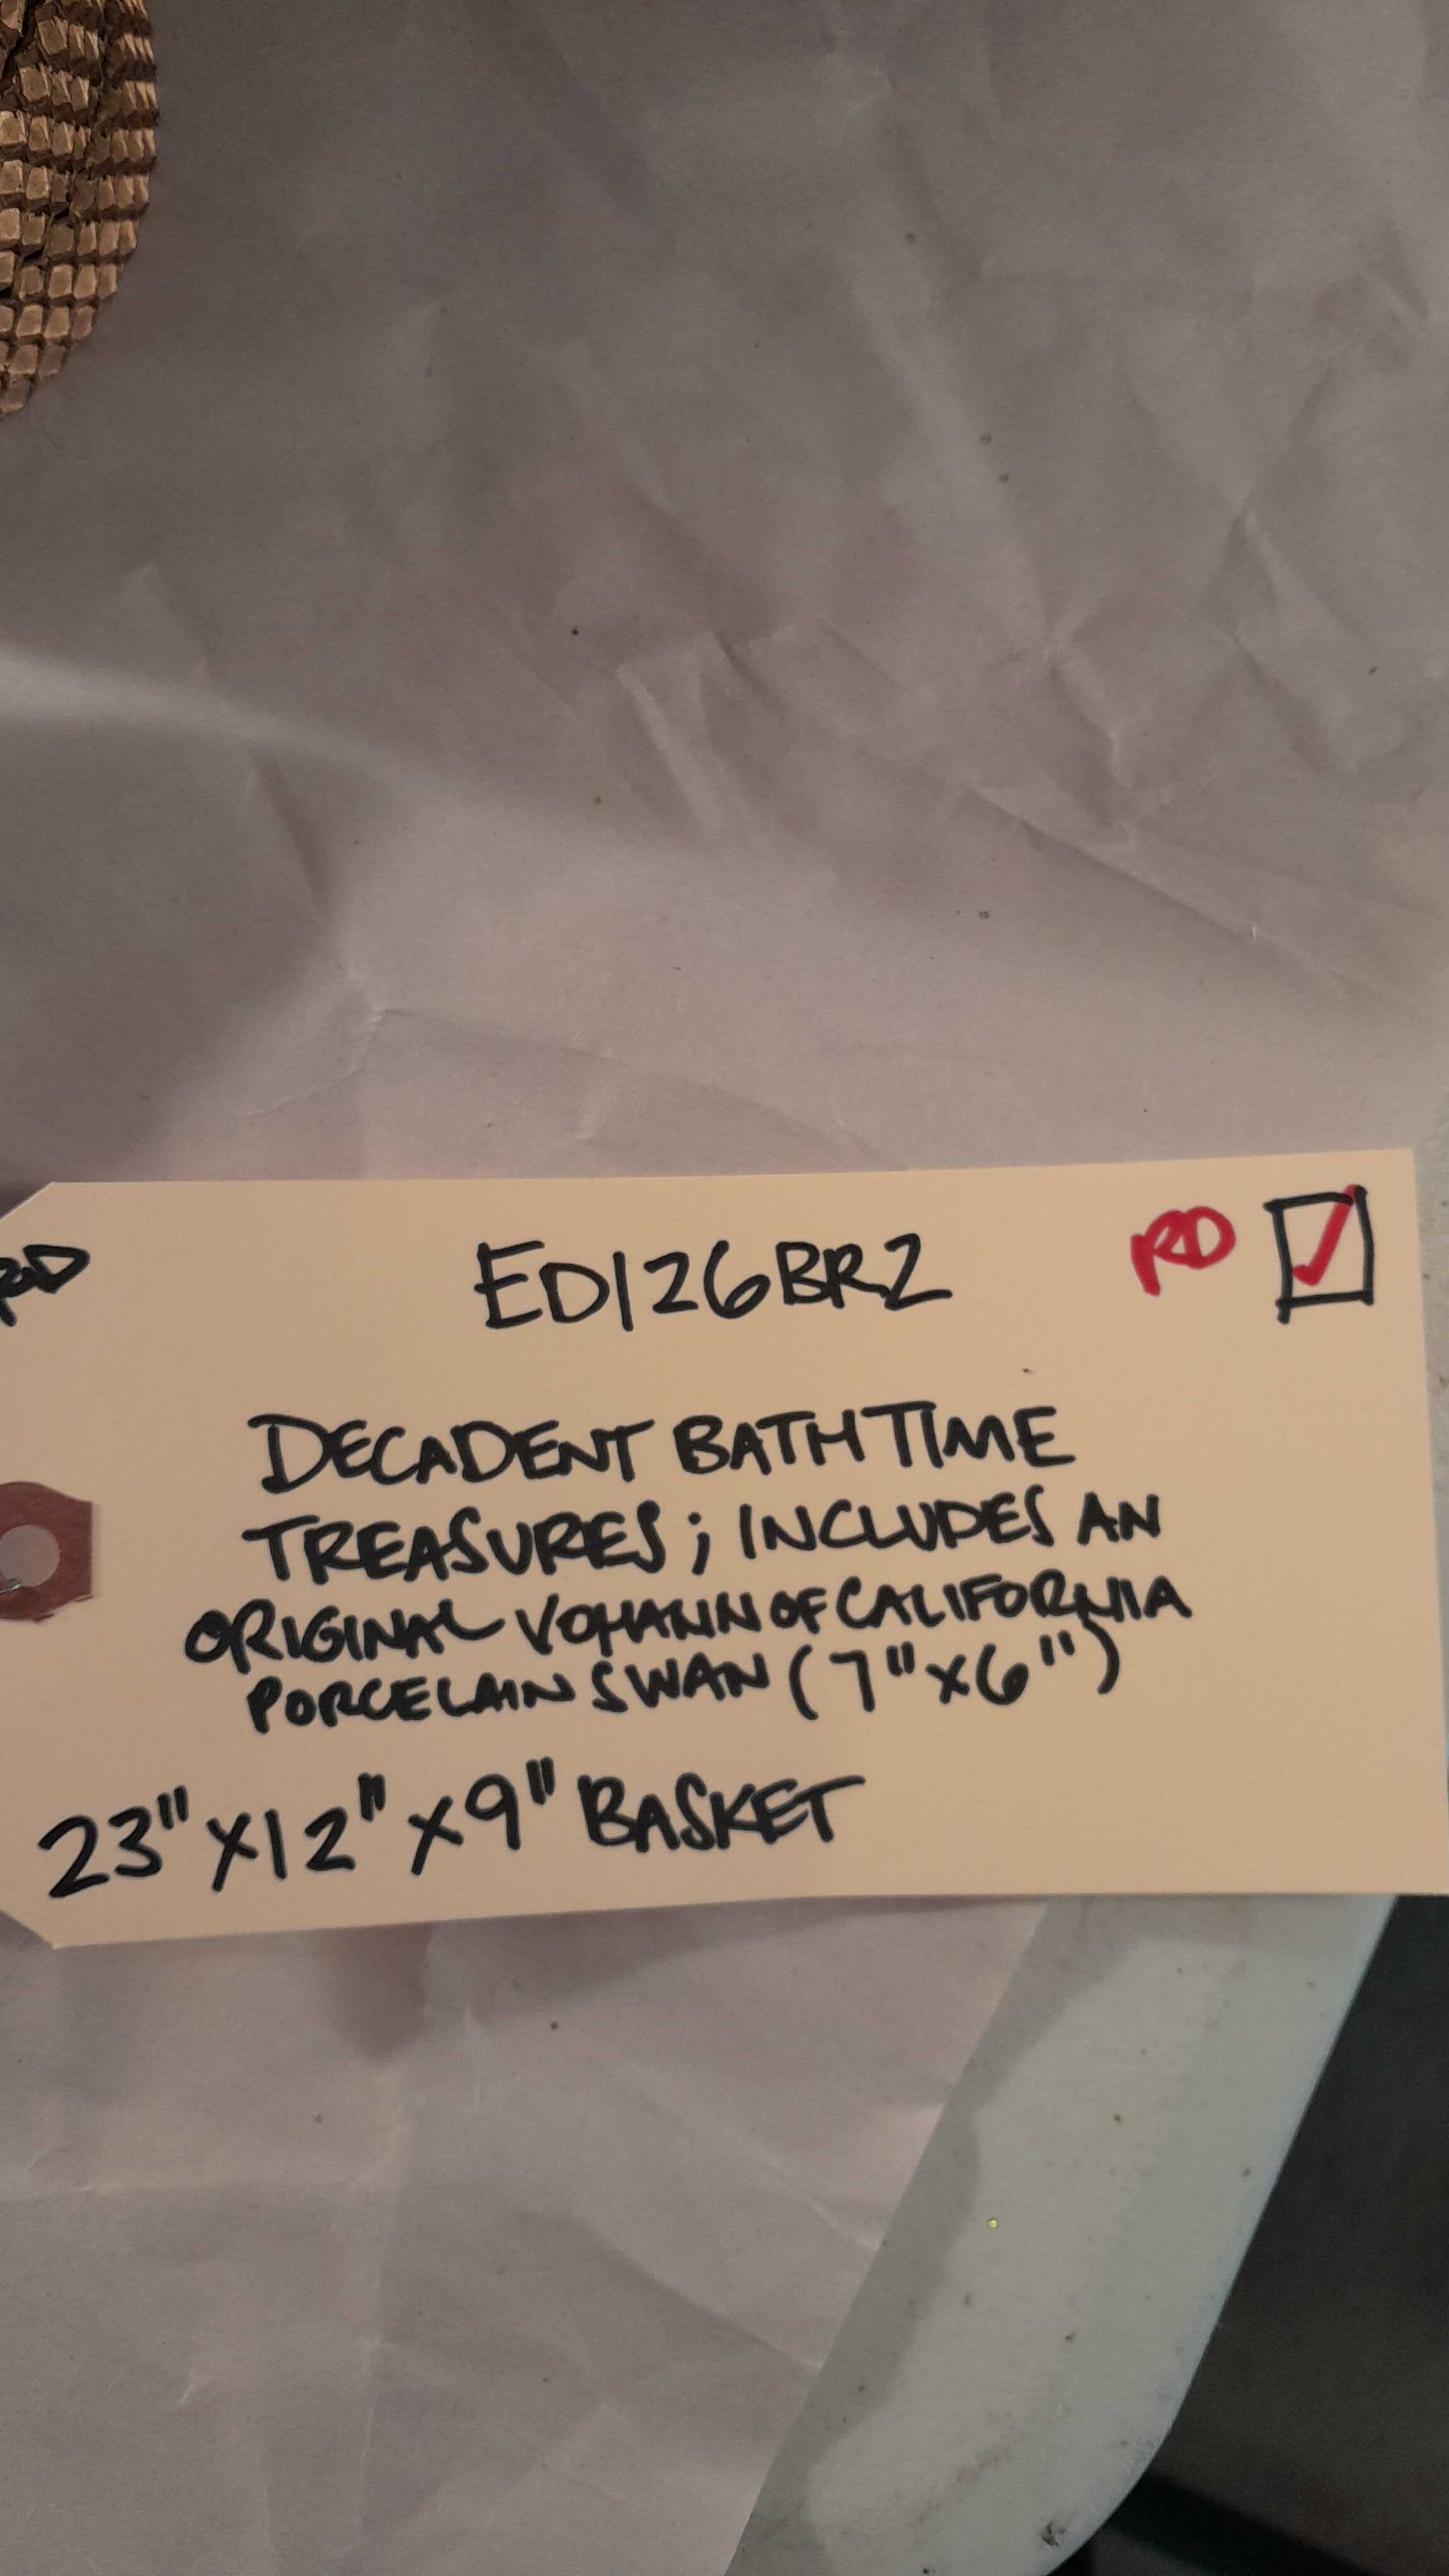 ED126BR2 RD
DECADENT BATH TIME
TREASURES; INCLUDES AN
ORIGINAL VOHANN OF CALIFORNIA
PORCELAIN SWAN (7"x6")
23"x12"x9" BASKET